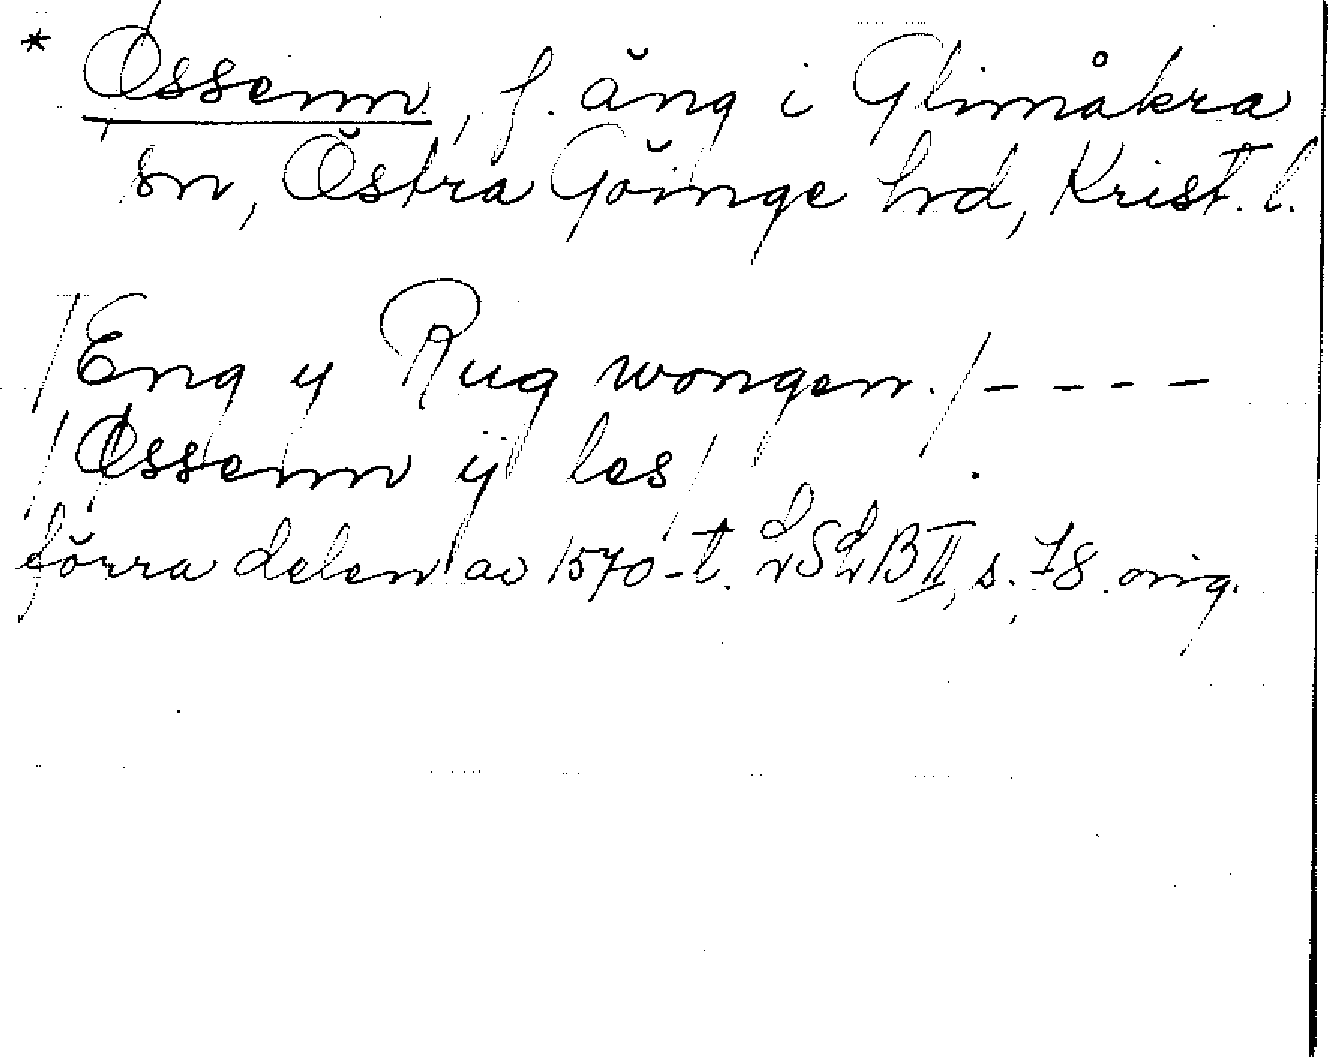 * Øssenn, f. äng i Glimåkra
sn, Östra Göinge hrd, Krist. l.
/Eng y Rug wongen./ - - - -
/Øssenn ÿ les/
förra delen av 1570-t. LSLB II, s. 78. orig.